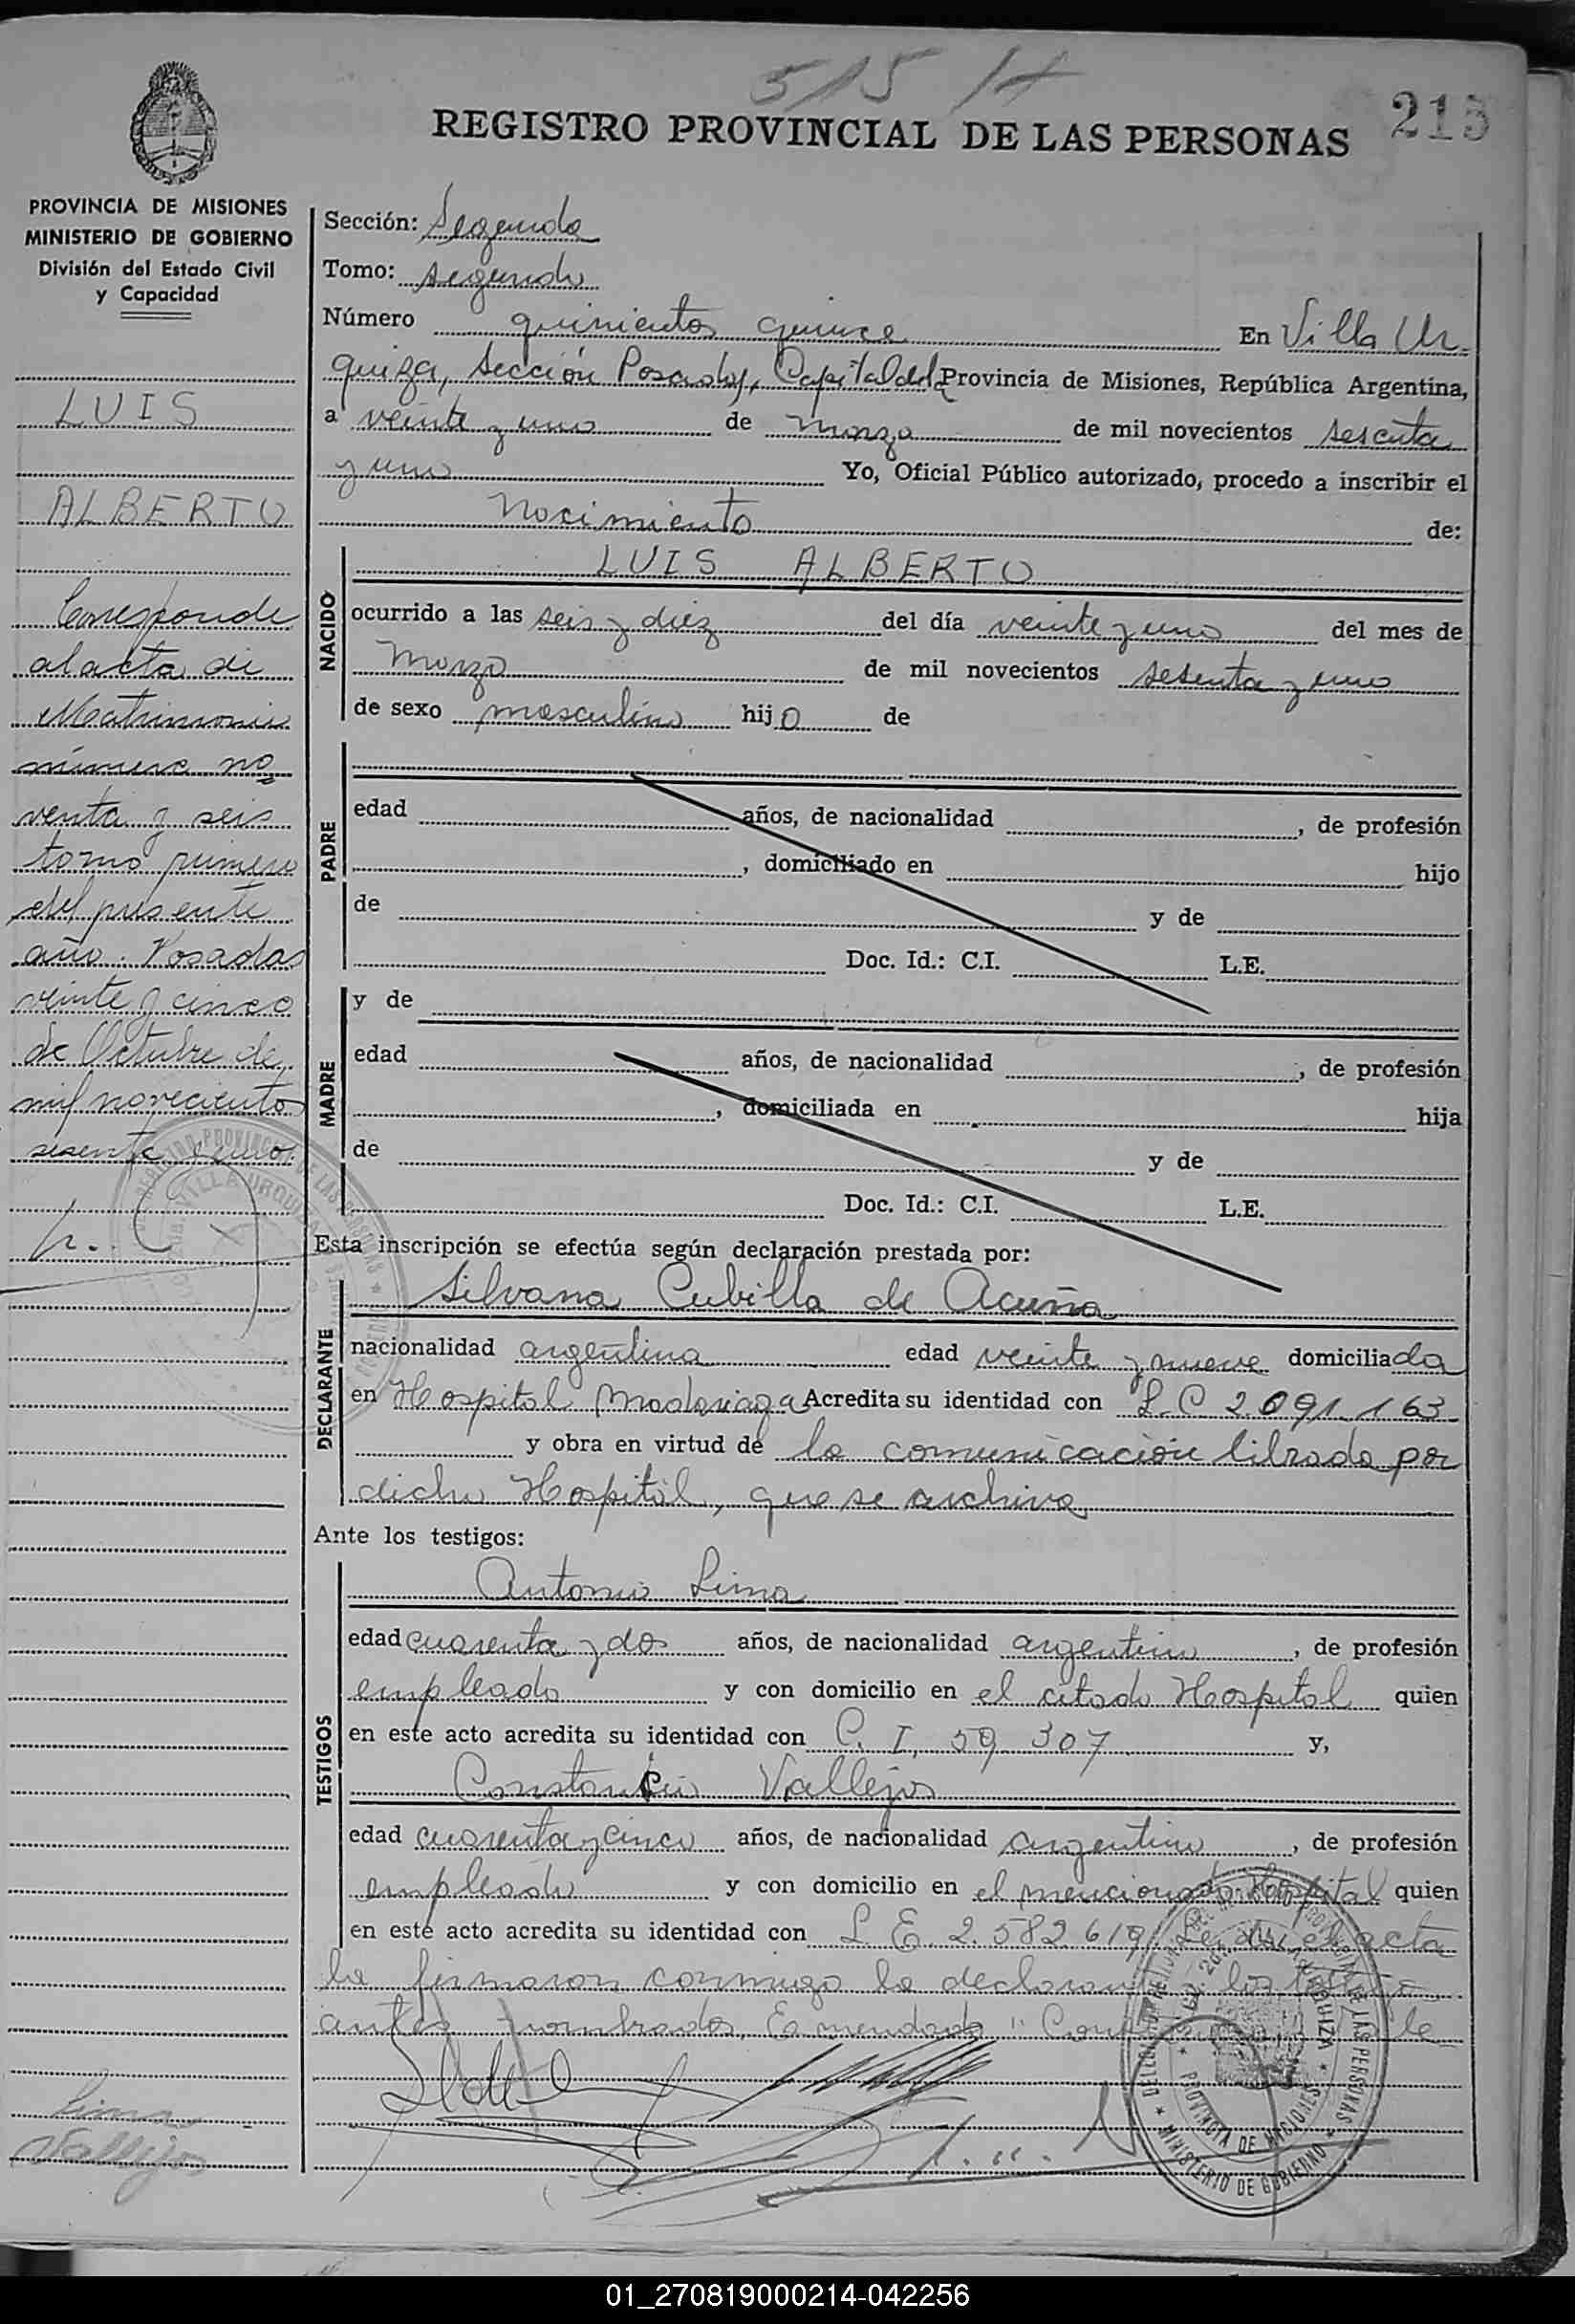 515 H
215
REGISTRO PROVINCIAL DE LAS PERSONAS
PROVINCIA DE MISIONES
MINISTERIO DE GOBIERNO
División del Estado Civil
y Capacidad
LUIS
ALBERTO
Corresponde
al acta de
Matrimonio
número no
venta y seis
tomo primero
del presente
año. Posadas
veinte y cinco
de Octubre de
mil novecientos
sesenta y uno.
Sección: Segunda
Tomo: segundo
Número quinientos quince En Villa Ur-
quiza, Sección Posadas, Capital de la Provincia de Misiones, República Argentina,
a veinte y uno de marzo de mil novecientos sesenta
y uno Yo, Oficial Público autorizado, procedo a inscribir el
Nacimiento de:
NACIDO
LUIS ALBERTO
ocurrido a las seis y diez del día veinte y uno del mes de
marzo de mil novecientos sesenta y uno
de sexo masculino hijo de
PADRE
edad años, de nacionalidad , de profesión
, domiciliado en hijo
de y de
Doc. Id.: C.I. L.E.
MADRE
y de
edad años, de nacionalidad , de profesión
, domiciliada en hija
de y de
Doc. Id.: C.I. L.E.
Esta inscripción se efectúa según declaración prestada por:
DECLARANTE
Silvana Cubilla de Acuña
nacionalidad argentina edad veinte y nueve domiciliada
en Hospital Madariaga Acredita su identidad con L.C 2.091.163
y obra en virtud de la comunicación librada por
dicho Hospital, que se archiva
Ante los testigos:
TESTIGOS
Antonio Lima
edad cuarenta y dos años, de nacionalidad argentino , de profesión
empleado y con domicilio en el citado Hospital quien
en este acto acredita su identidad con C. I. 59.307 y,
Constancio Vallejos
edad cuarenta y cinco años, de nacionalidad argentino , de profesión
empleado y con domicilio en el mencionado Hospital quien
en este acto acredita su identidad con L E. 2.582.619 Leída el acta
la firmaron conmigo la declarante y los testigos
antes nombrados. Enmendado " Vale
Lima
Vallejos
PROVINCIA DE MISIONES
MINISTERIO DE GOBIERNO
01_270819000214-042256